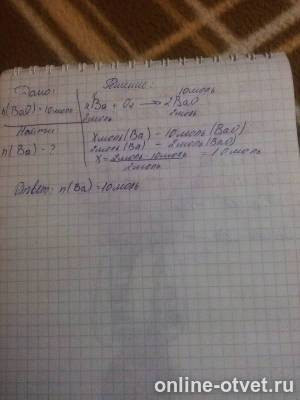 Дано:
Решение:
n(BaO)=10моль
Найти:
n(Ba)-?
x 10моль
2Ba + O₂ → 2BaO
2моль 2моль
Xмоль(Ba) - 10моль(BaO)
2моль(Ba) - 2моль(BaO)
X = 2моль·10моль / 2моль = 10моль
Ответ: n(Ba)=10моль
online-otvet.ru